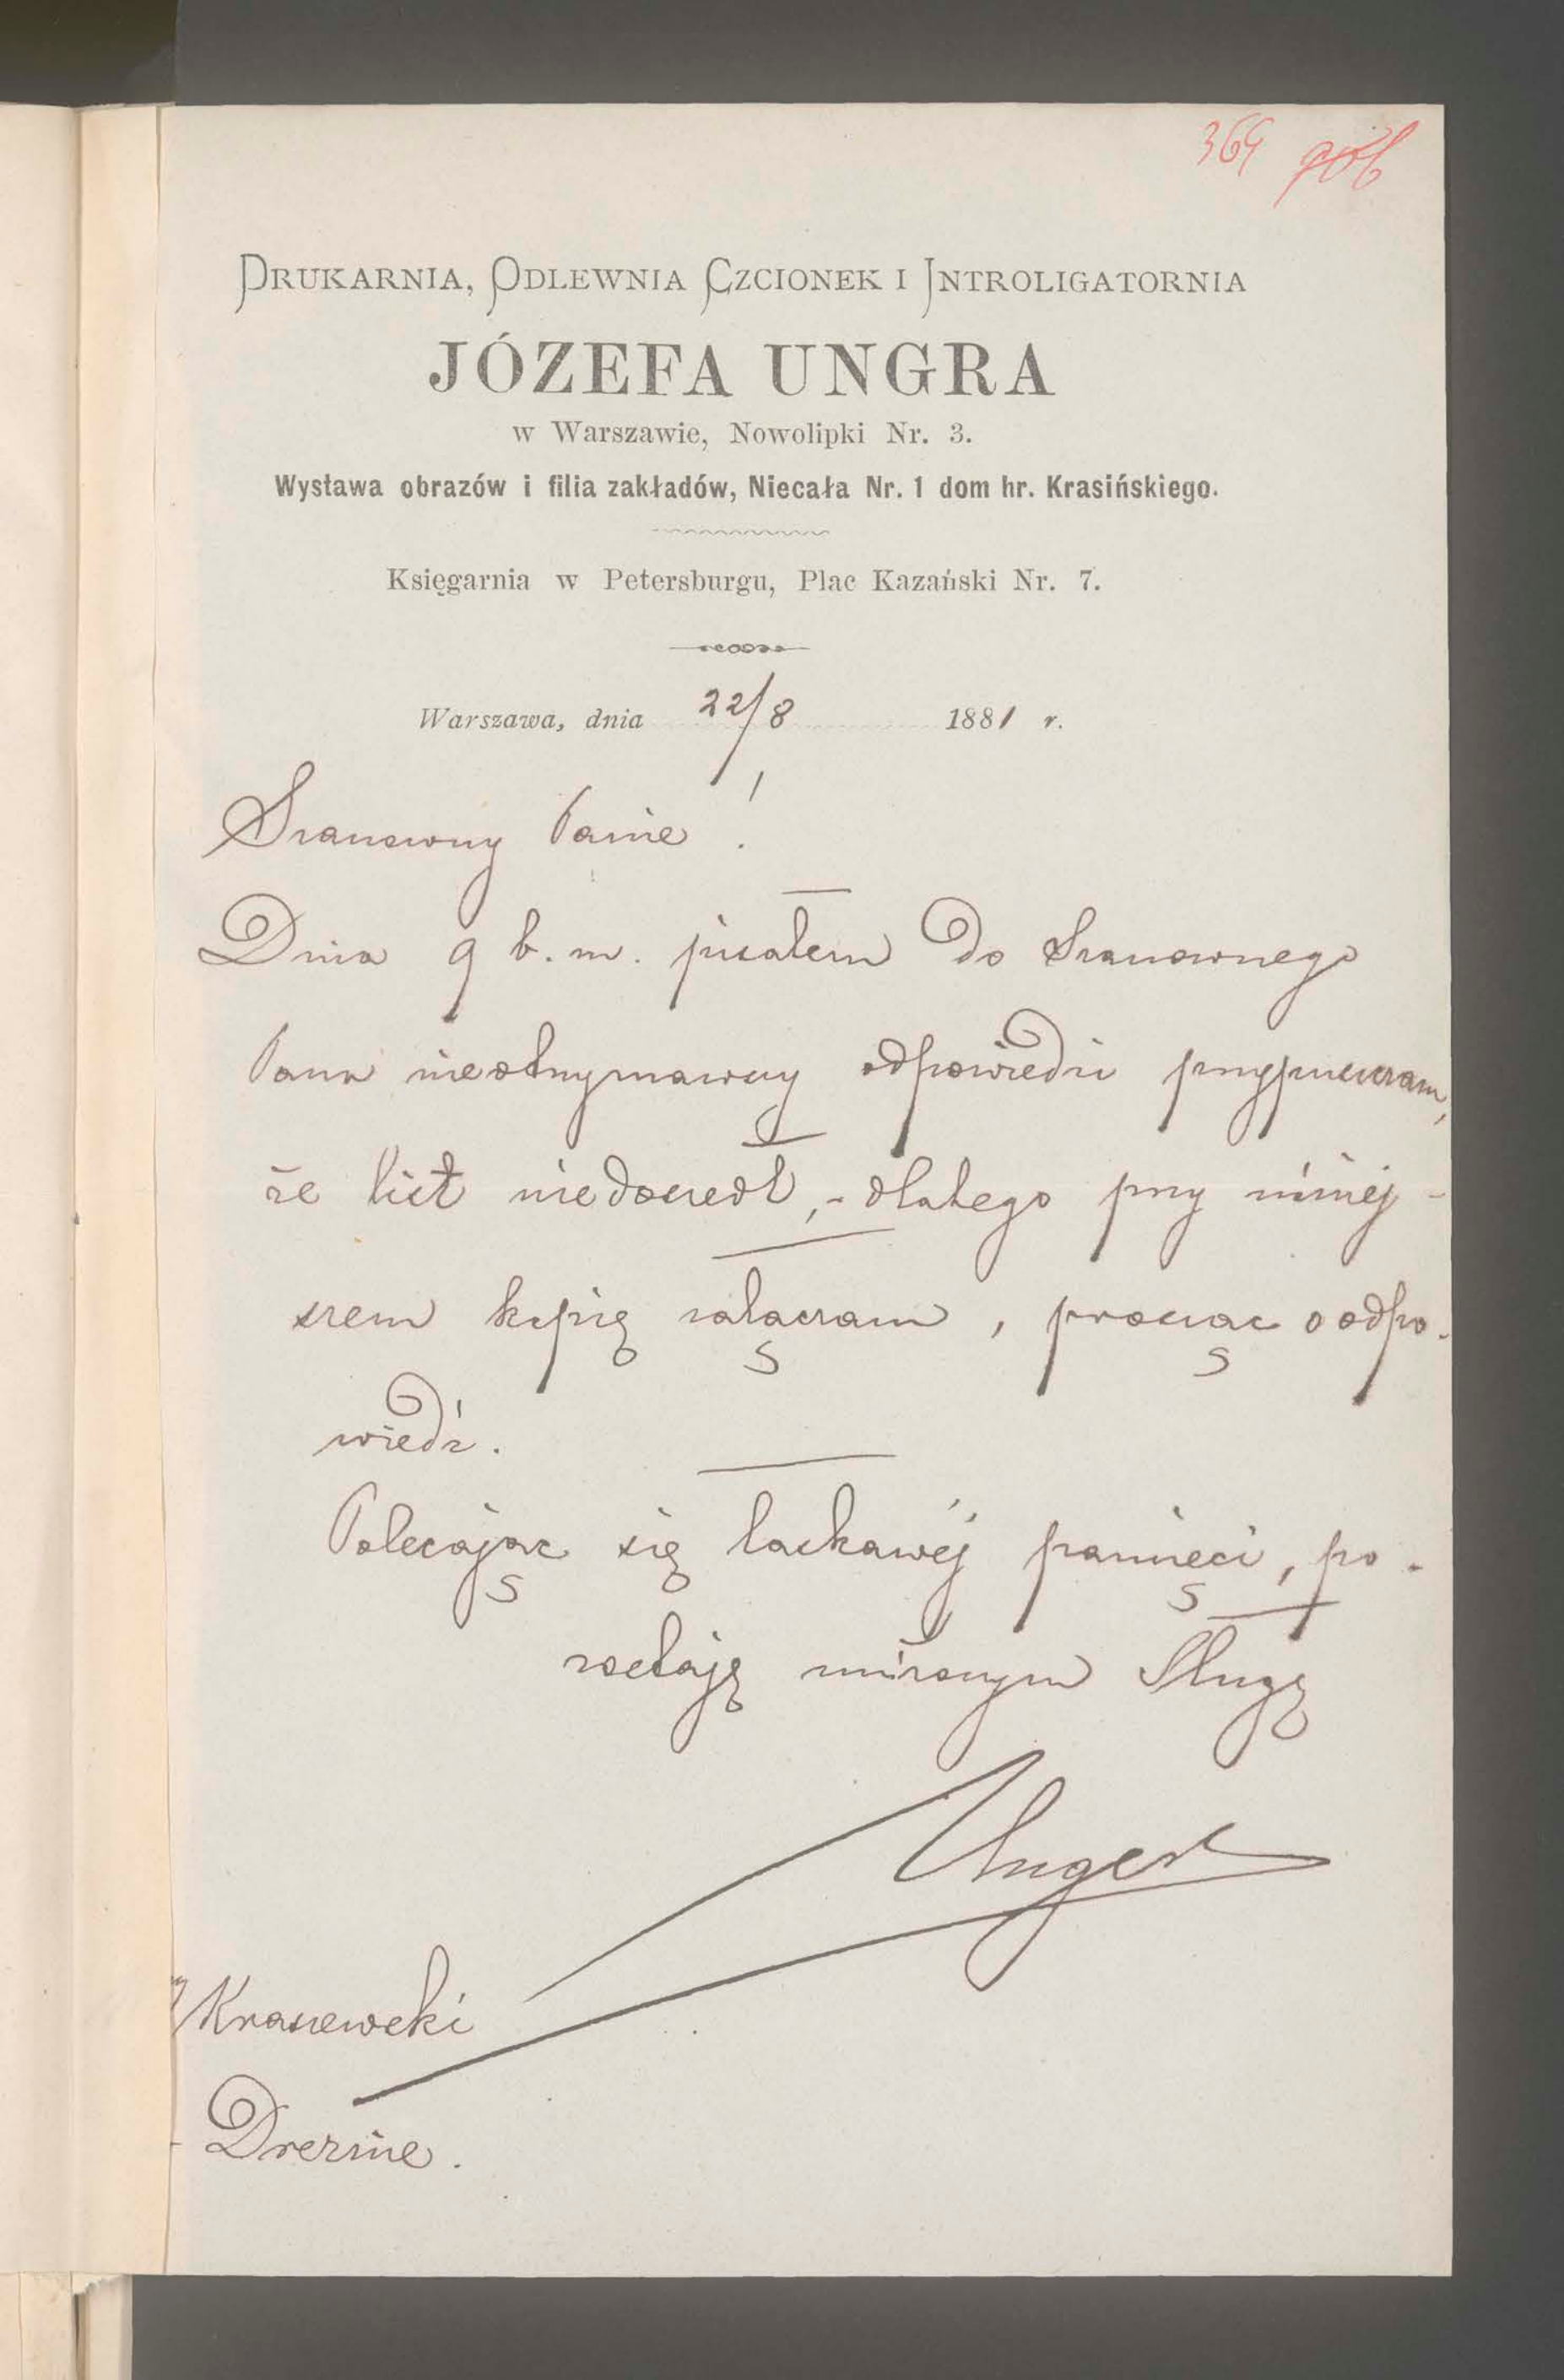 369
DRUKARNIA, ODLEWNIA CZCIONEK I INTROLIGATORNIA
JÓZEFA UNGRA
w Warszawie, Nowolipki Nr. 3.
Wystawa obrazów i filia zakładów, Niecała Nr. 1 dom hr. Krasińskiego.
Księgarnia w Petersburgu, Plac Kazański Nr. 7.
Warszawa, dnia 22/8 1881 r.
Szanowny Panie!
Dnia 9 b. m. pisałem do Szanownego
Pana nieotrzymawszy odpowiedzi przypuszczam,
że list niedoszedł, - dlatego przy niniej-
szem kopię załączam, prosząc o odpo-
wiedź.
Polecając się łaskawéj pamięci, po-
zostaję uniżonym Sługą
Unger
Kraszewski
Dreznie.